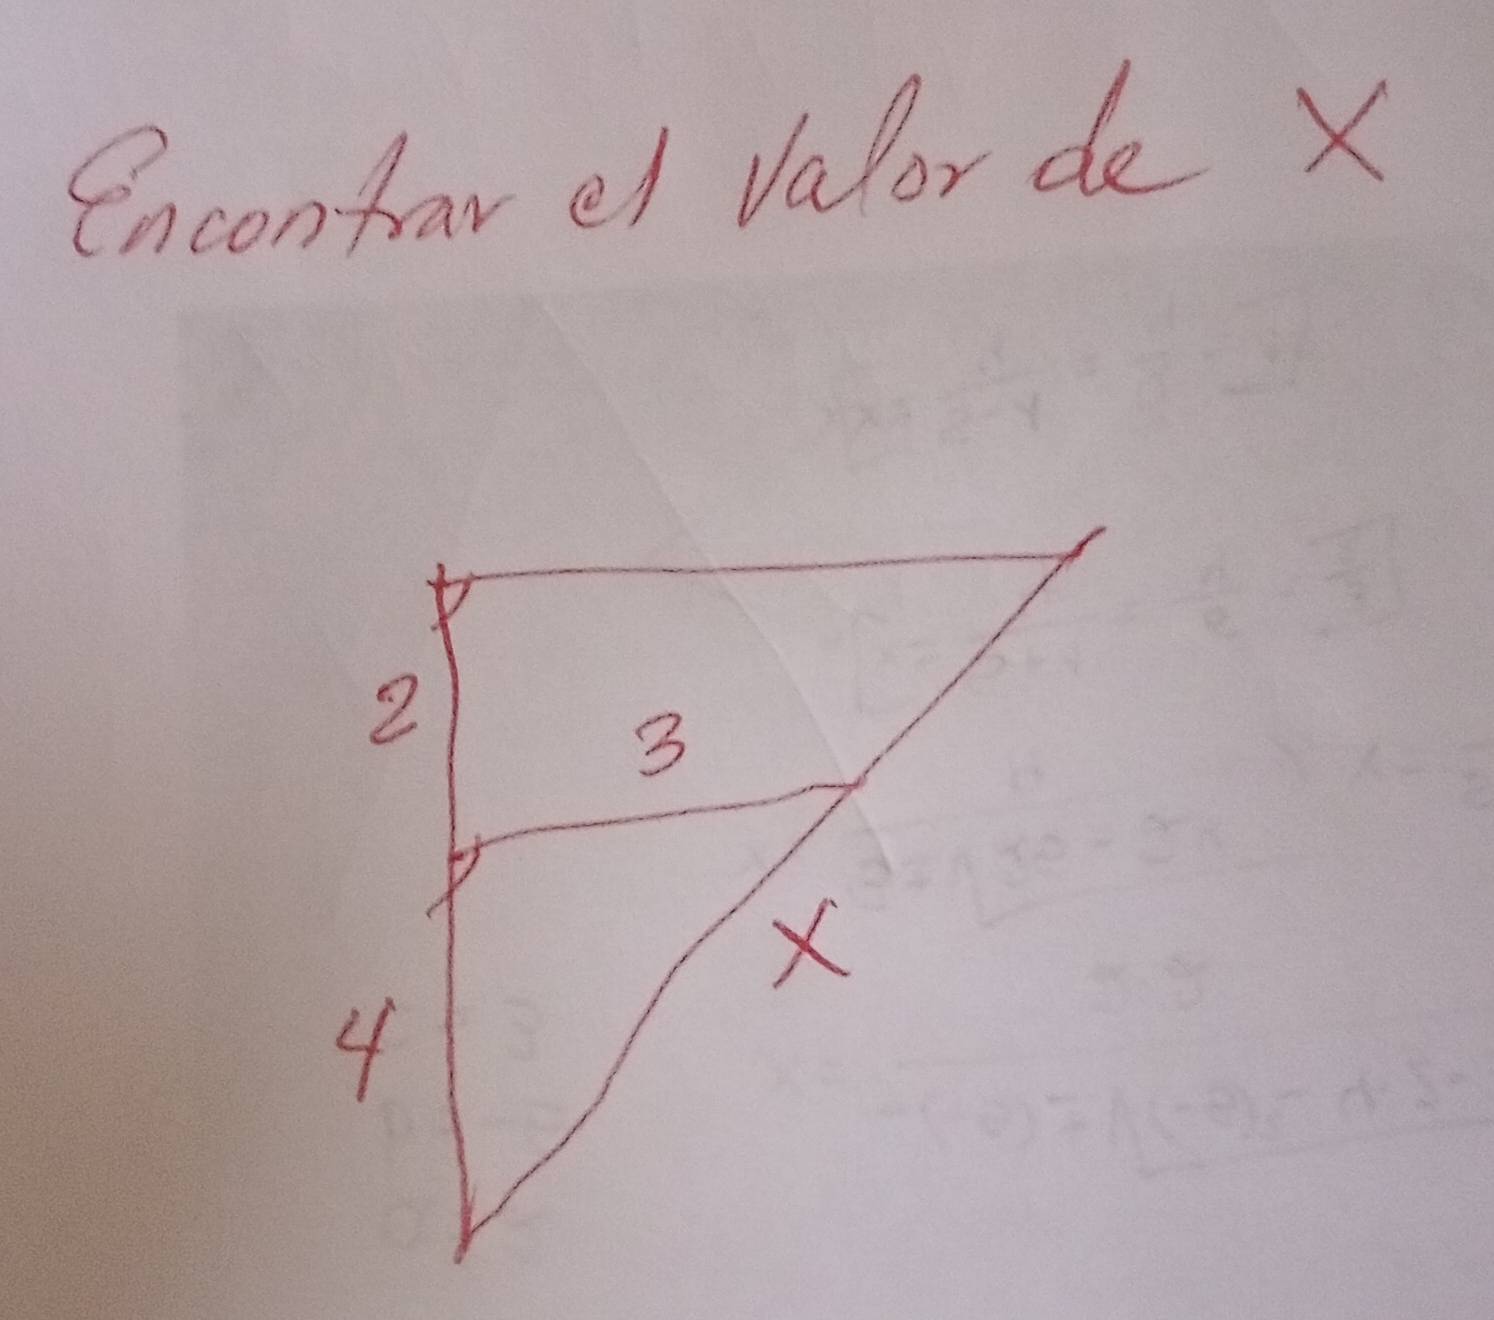 Encontrar el valor de X
2
3
X
4